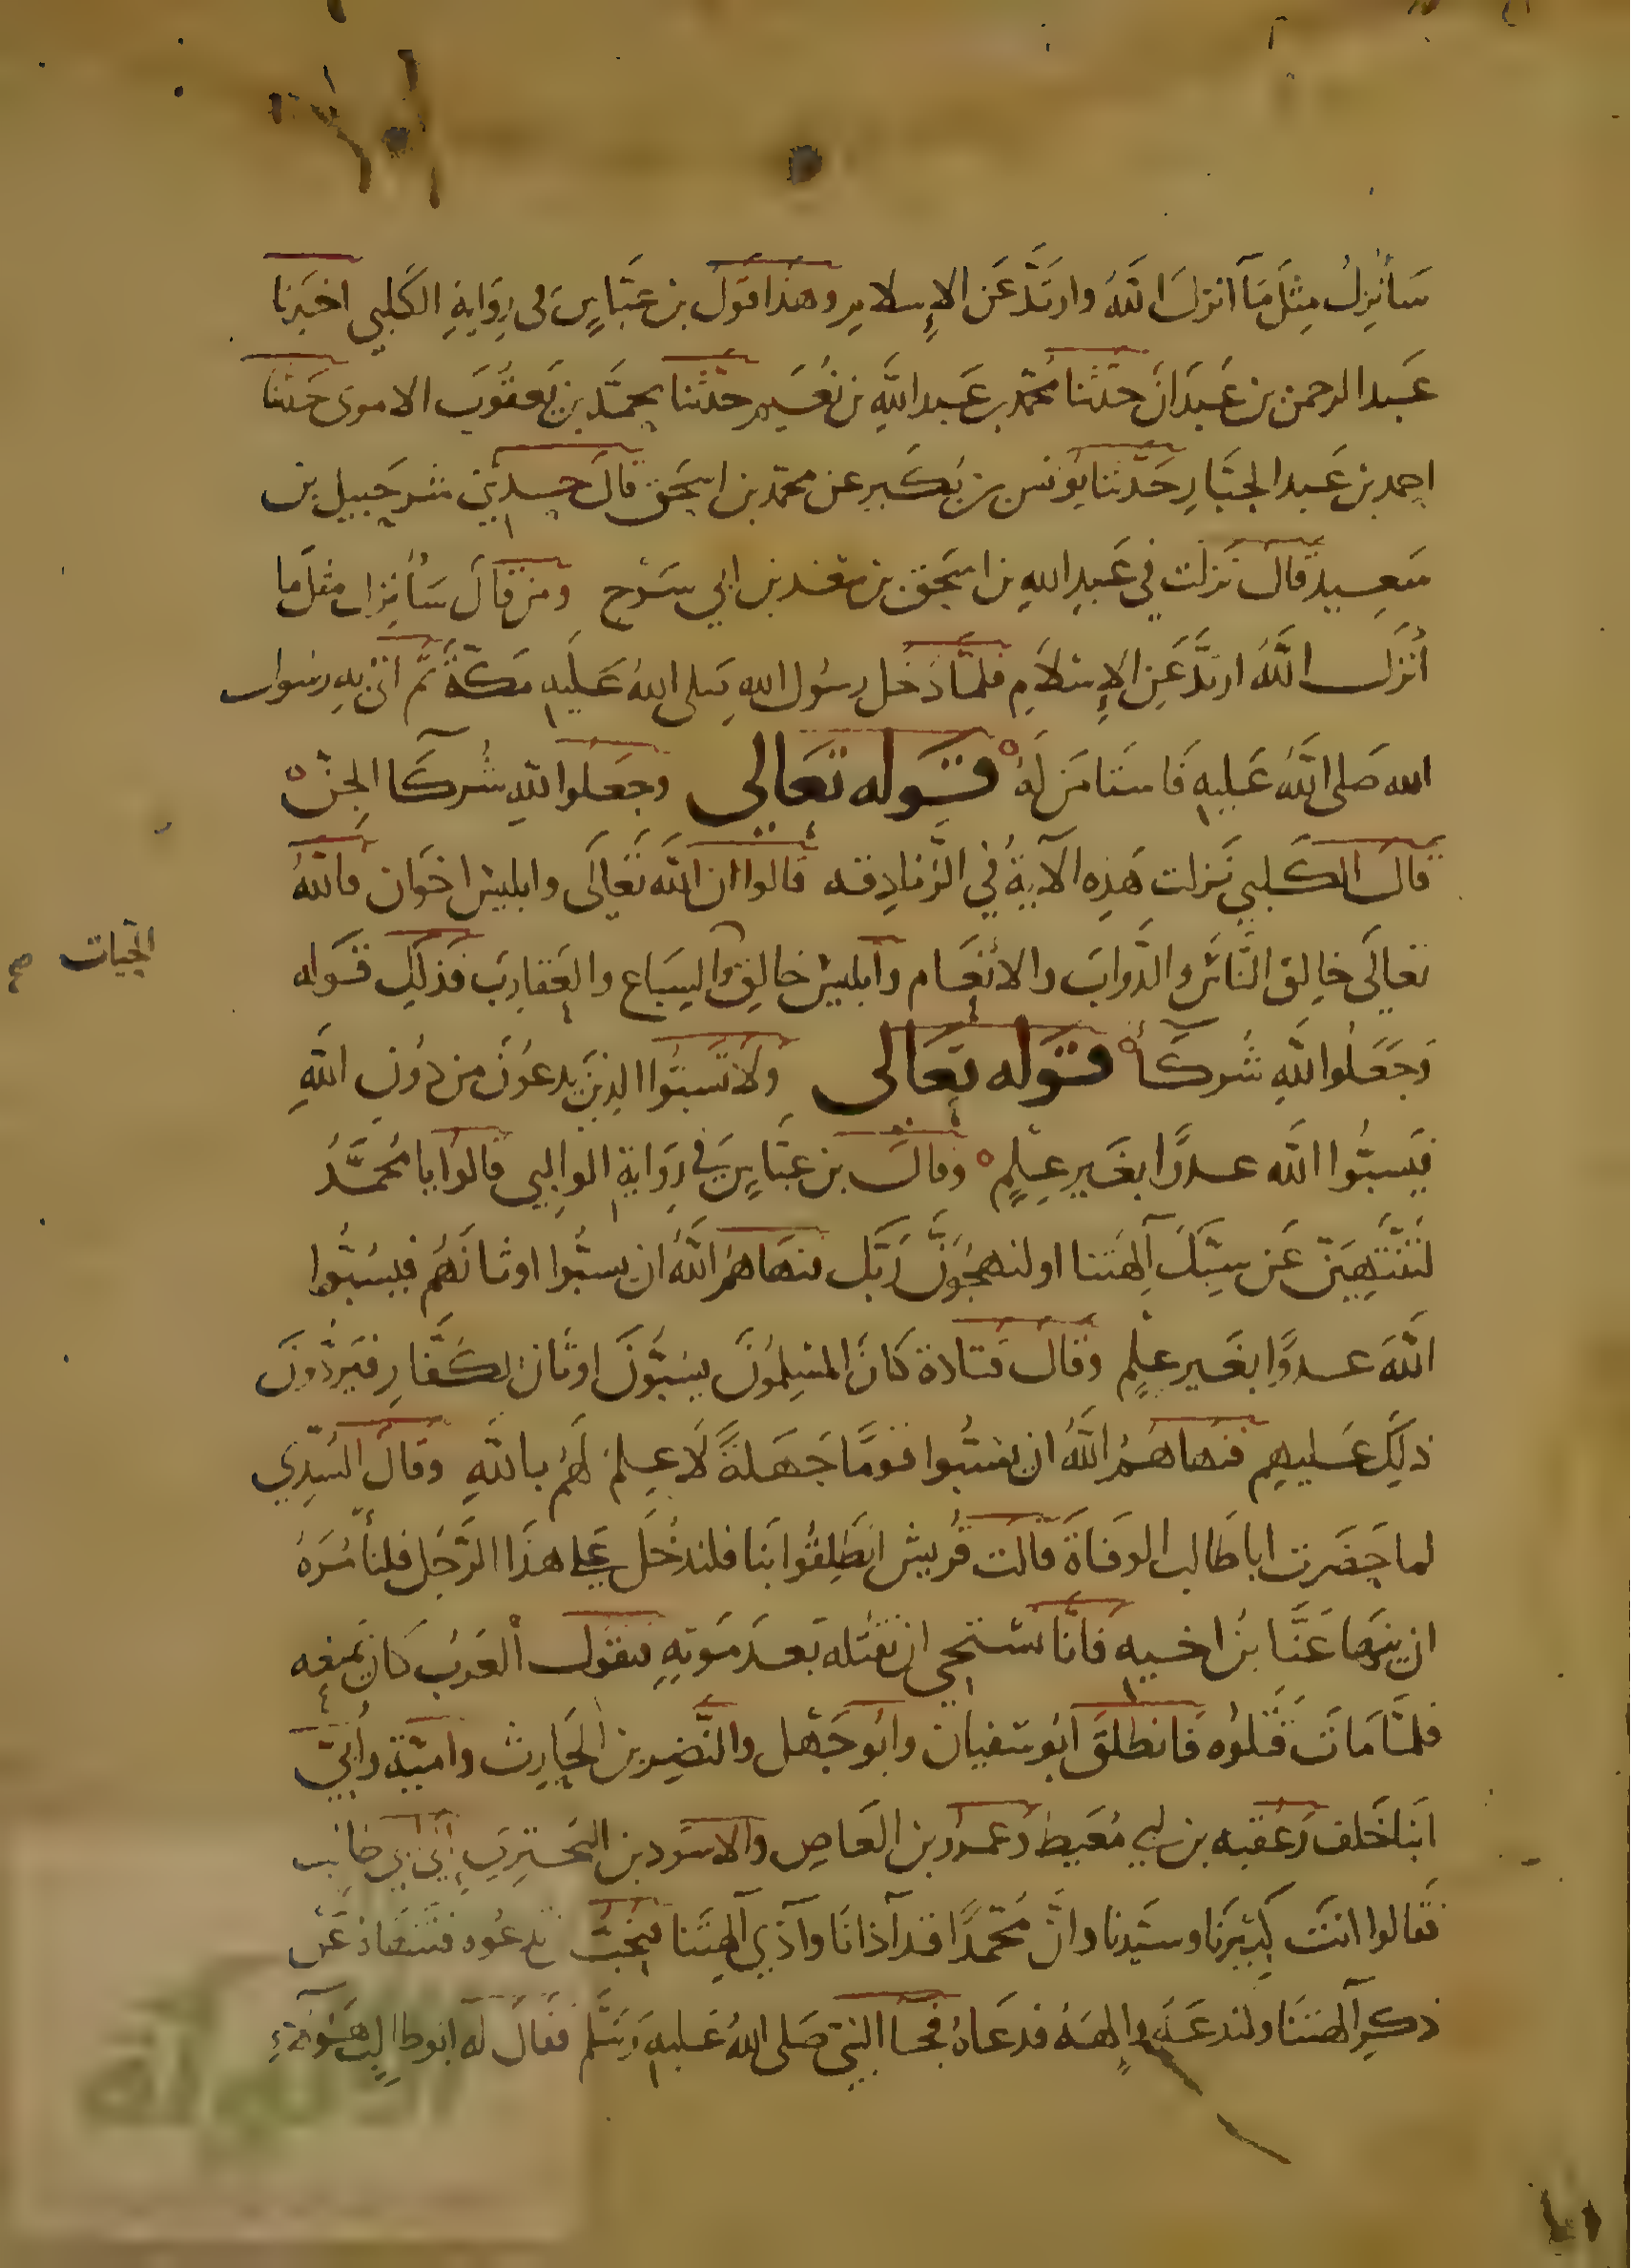 سَأُنزِلُ مِثلَ مَا أنزلَ اللهُ وارتَدَّ عَن الإسلام وهذا قولُ بن عَبّاسٍ في رِوَايةِ الكَلبي اخبَرنا
عَبد الرحمن بن عَبدَانَ حدثنا محمد بن عَبد اللهِ بن نُعَيم حدثنا محمَّد بن يَعقوُبَ الاموى حَدثنا
احمد بن عَبد الجبَّارِ حَدثنا يُونس بن بُكَير عن محمد بن اسحق قالَ حدثني شرحبيل بن
سَعِيد قالَ نزلت في عَبدِ اللهِ بن اسحق بن سعد بن ابي سَرح ومن قالَ سَأُنزل مثلَ ما
أنزل اللهُ ارتدَّ عَنِ الإِسْلامِ فلمَّا دَخل رسُول الله صلى اللهُ عَليهِ مَكّةَ ثمّ اتى بِهِ رسُول
الله صَلى اللهُ عَليهِ فاستامَن لَهُ قوله تعَالى وجعَلوا للهِ شُركَا الجِنّ
قالَ الكَلبي نَزلت هَذِه الآيةُ في الزنادِقه قالوا ان الله تعَالَى وابليسَ اخوَان فاللهُ
تعَالَى خالِق النّاسَ والدَّوابَ والانعَام وابليسَ خالِق والسِبَاع والعَقارِبَ فذلِكَ قَوله
الحيات صح
وَجَعَلُوا للهِ شُركَا قوله تعَالى ولا تَسبُّوا الذِينَ يدعُونَ من دُونِ اللهِ
فَيَسبُّوا الله عدوًا بغَيرِ عِلمٍ وقالَ بن عبَّاسٍ في رِوَايةِ الوالِبي قالوا يا مُحمَّدُ
لتَنتَهِيَنّ عَن سَبِّكَ آلِهَتنا او لنهجُوَنَّ رَبَّك فنهَاهمُ اللهُ ان يسبُّوا اوثانَهُم فيسُبُّوا
اللهَ عدوًا بغَير عِلمٍ وقالَ قتادة كانَ المسلِمُونَ يسُبُّونَ اوثان الكفَّارِ فيَردُّونَ
ذلِكَ عَليهِم فنهاهمُ اللهُ ان يستَبوا قومًا جَهَلةً لا عِلمَ لَهُم باللهِ وقالَ السُدِّي
لما حضَرت ابا طَالب الوَفاةَ قالت قُريش انطَلِقُوا بنا فلندخُلَ على هذَا الرّجُل فلنأمُرَهُ
ان ينهَا عَنَّا بن اخيهِ فانّا نستحِي ان نقتله بَعدَ مَوتهِ فتقول العَربُ كانَ يمنعه
فلمّا مَاتَ قَتلوُه فانطلَقَ ابُو سفيان وابُو جَهل والنّضِر بن الحارِث واميّة وأُبيّ
ابنا خَلف وَعُقبه بن ابي مُعَيط وَعمرو بن العَاصِ والاسوَد بن البخترِي الى ابي طالب
فقالوا انتَ كَبيرَنا وسَيّدنا وانَّ محَمدًا قد آذانا وآذي آلهتَنا فنحبُّ ان تدعُوه فتَنهَاه عَن
ذكرِ آلهتنَا ولندعَنَّه والهَهُ فدعَاهُ فجا النبيّ صَلى اللهُ عَليهِ وَسَلَّم فقالَ لَه ابوطالِب هَؤُلاءِ